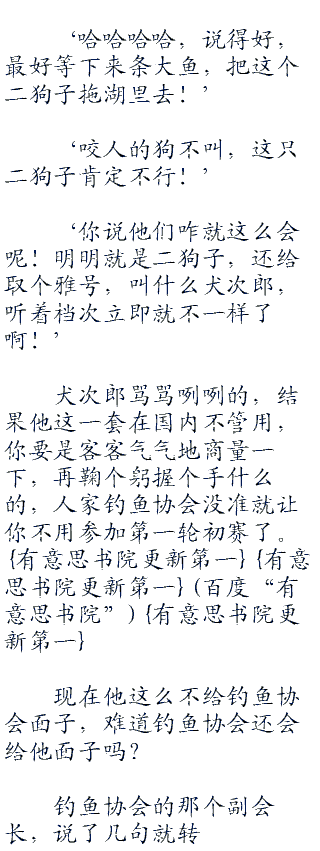 ‘哈哈哈哈，说得好，
最好等下来条大鱼，把这个
二狗子拖湖里去！’
‘咬人的狗不叫，这只
二狗子肯定不行！’
‘你说他们咋就这么会
呢！明明就是二狗子，还给
取个雅号，叫什么犬次郎，
听着档次立即就不一样了
啊！’
犬次郎骂骂咧咧的，结
果他这一套在国内不管用，
你要是客客气气地商量一
下，再鞠个躬握个手什么
的，人家钓鱼协会没准就让
你不用参加第一轮初赛了。
{有意思书院更新第一}{有意
思书院更新第一}(百度“有
意思书院”){有意思书院更
新第一}
现在他这么不给钓鱼协
会面子，难道钓鱼协会还会
给他面子吗？
钓鱼协会的那个副会
长，说了几句就转